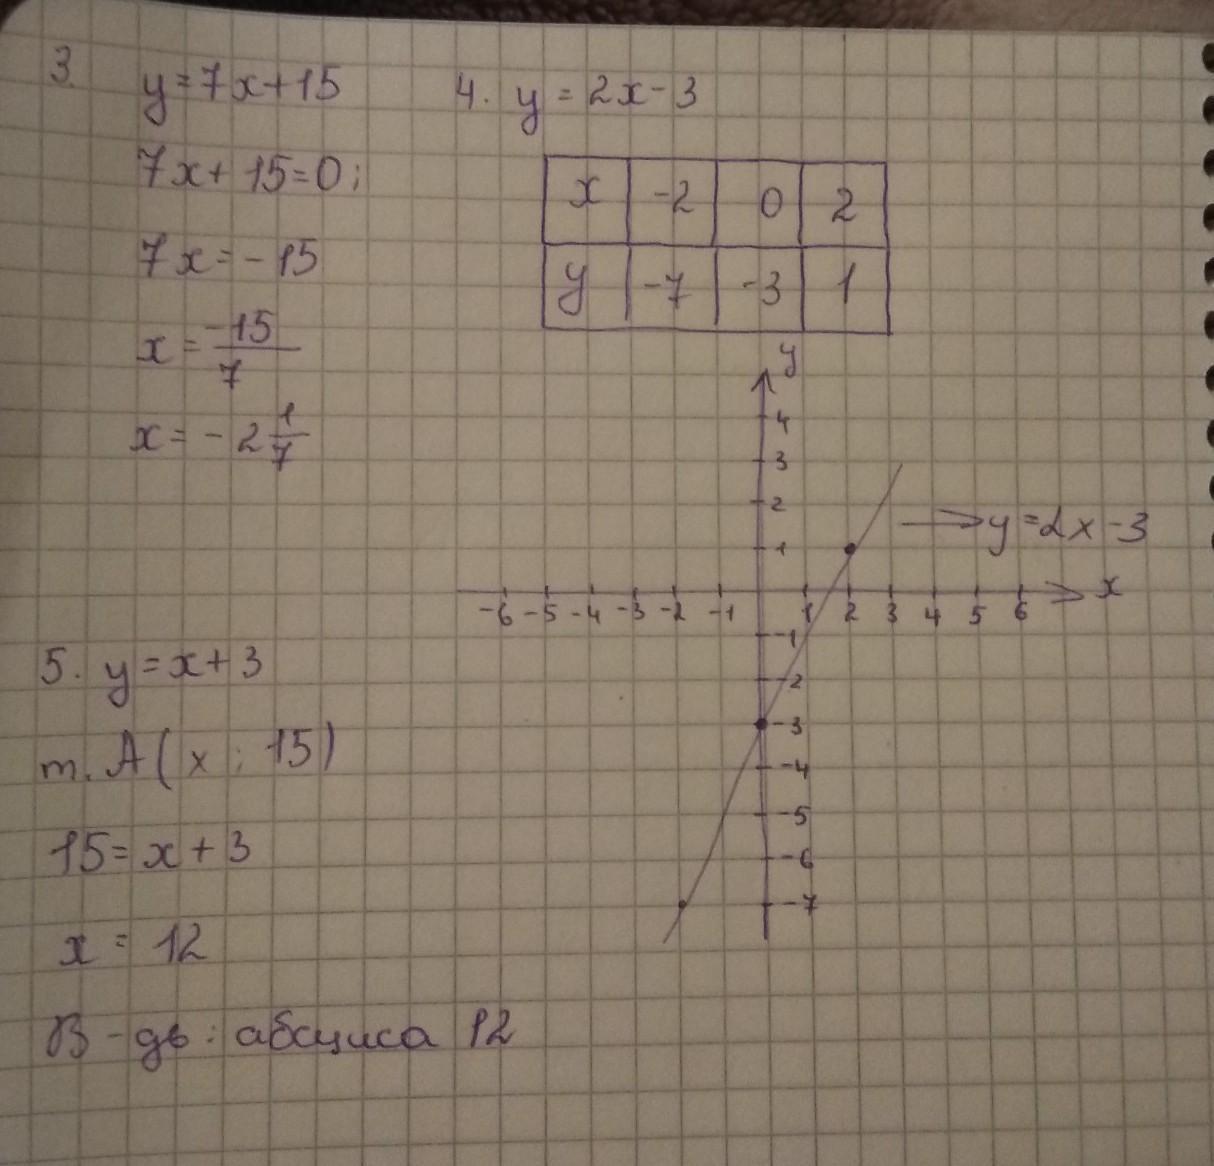 3.
y=7x+15
7x+15=0;
7x=-15
x=-15/7
x=-2 1/7
4. y=2x-3
x -2 0 2
y -7 -3 1
y
4
3
2
1
y=2x-3
-6 -5 -4 -3 -2 -1 1 2 3 4 5 6 x
-1
-2
-3
-4
-5
-6
-7
5. y=x+3
т. А(x; 15)
15=x+3
x=12
В-дь: абсциса 12